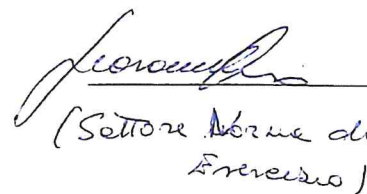 (Settore Norme di
Esercizio)